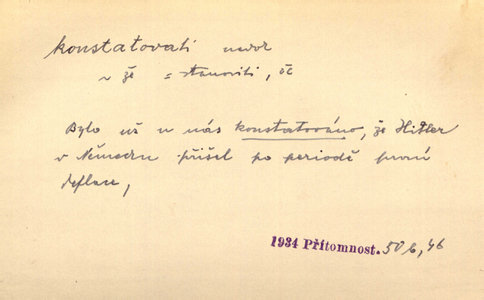 konstatovati nedok
~ že = stanoviti, čč
Bylo už u nás konstatováno, že Hitler
v Německu přišel po periodě první
deflace,
1934 Přítomnost. 50 b, 46